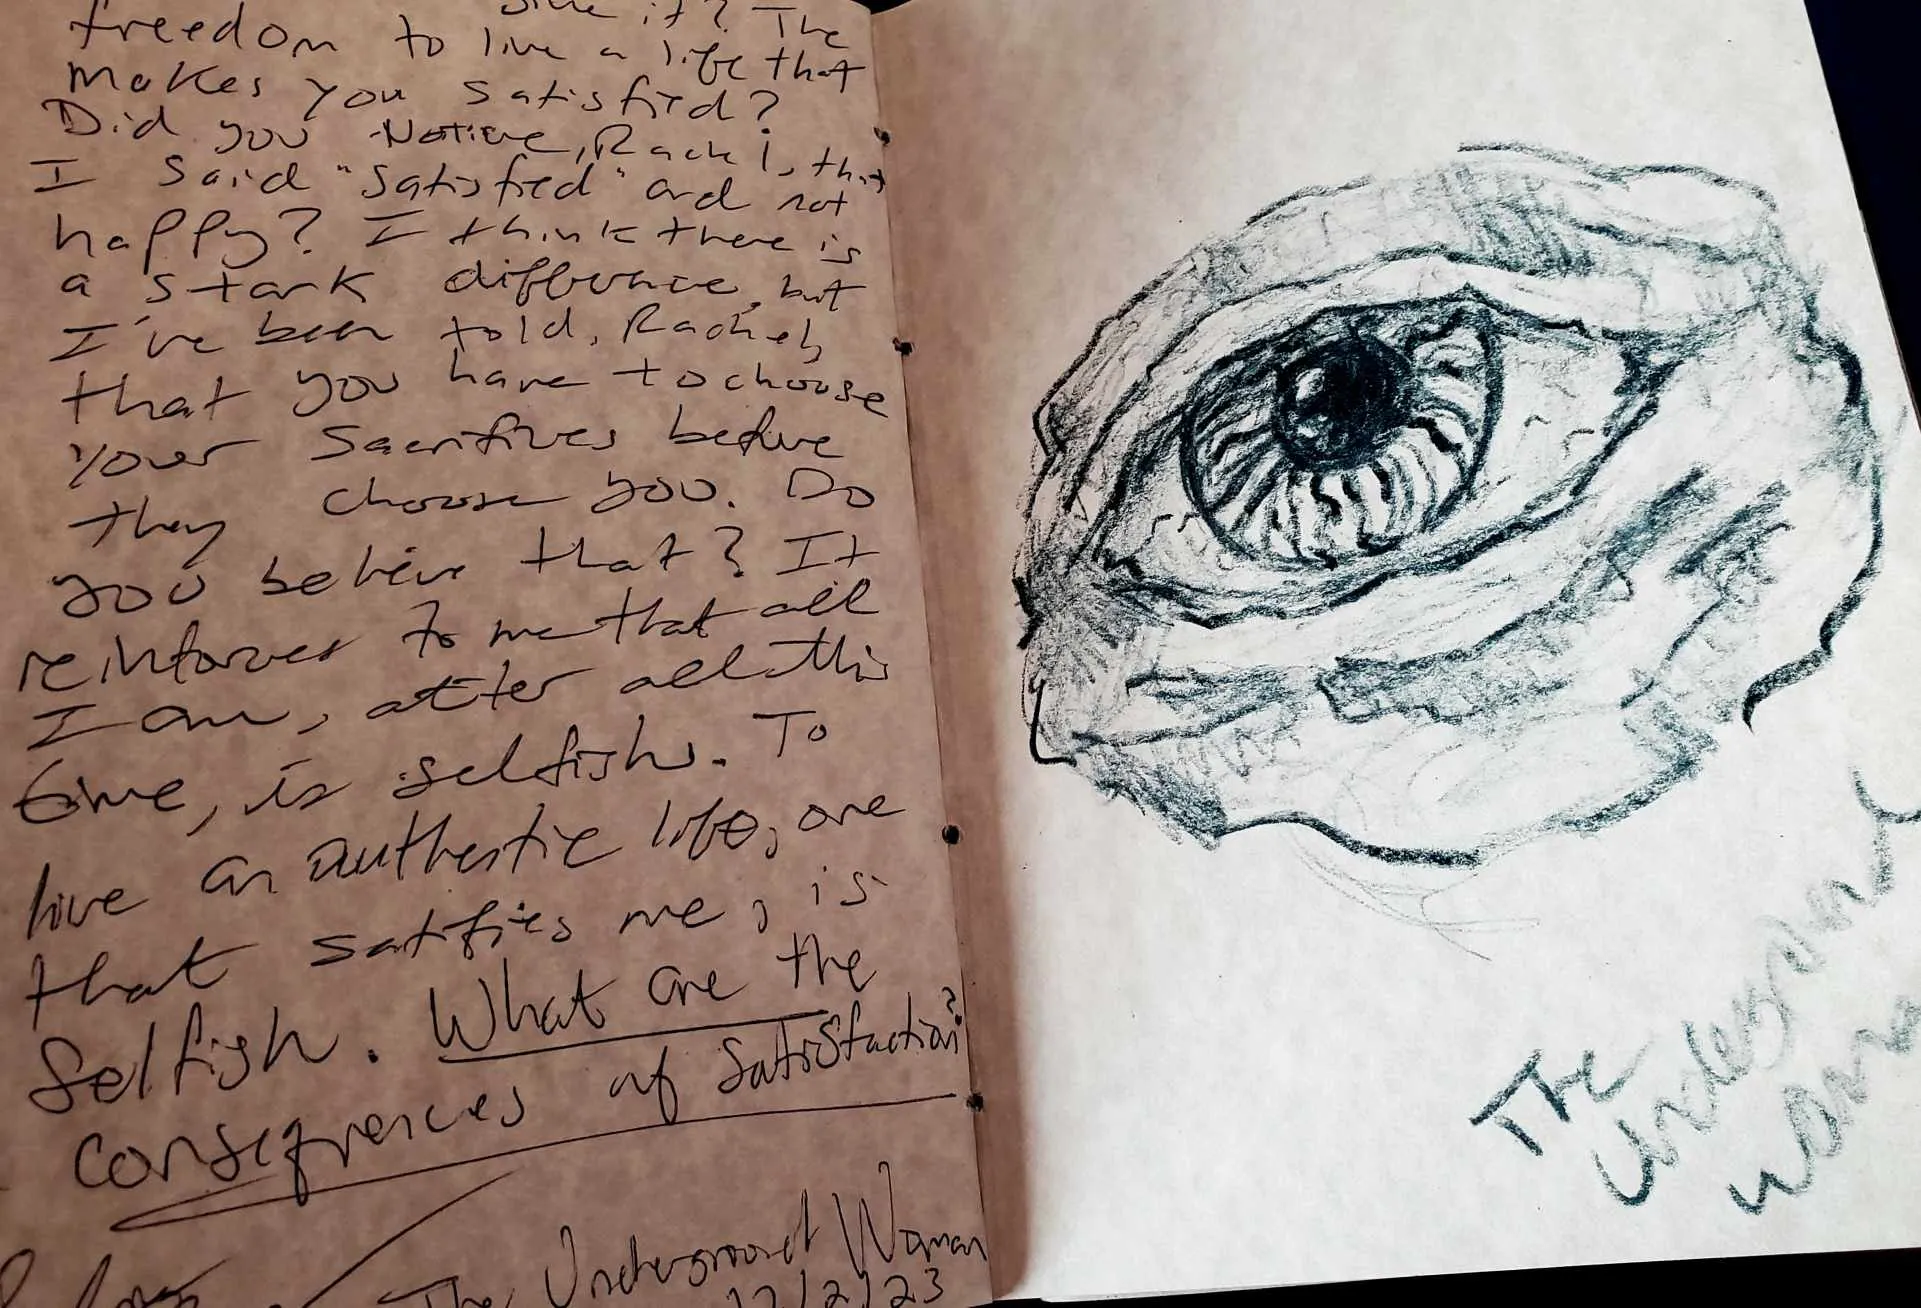 it? The
freedom to live a life that
makes you satisfied?
Did you Notice, Rachel, that
I said "satisfied" and not
happy? I think there is
a stark difference, but
I've been told, Rachel,
that you have to choose
your sacrifices before
they choose you. Do
you believe that? It
reinforces to me that all
I am, after all this
time, is selfish. To
live an authentic life, one
that satisfies me, is
Selfish. What are the
consequences of Satisfaction?
The Underground Woman
12/2/23
The
Underground
Woman